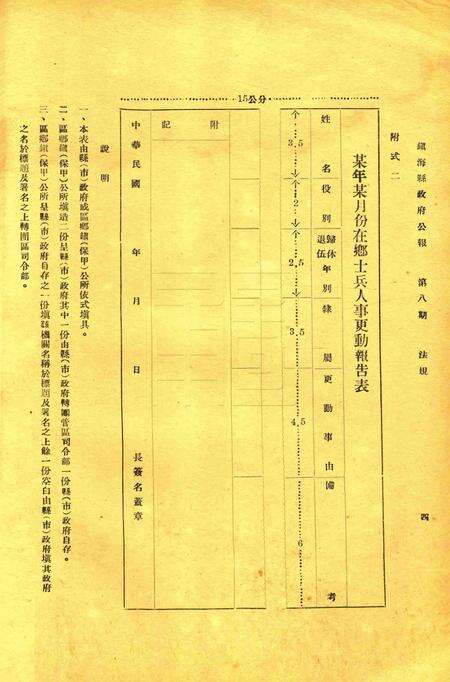 鎮海縣政府公報　第八期　法規　四
附式二
某年某月份在鄉士兵人事更動報告表
姓名　役別　歸休退伍年別　隸屬　更動事由　備考
3.5　2　2.5　3.5　4.5　6
15公分
附記
中華民國　年　月　日　長簽名蓋章
說明
一、本表由縣(市)政府或區鄉鎮(保甲)公所依式填具。
二、區鄉鎮(保甲)公所填造二份呈縣(市)政府其中一份由縣(市)政府轉團管區司令部一份縣(市)政府自存。
三、區鄉鎮(保甲)公所呈縣(市)政府自存之一份填縣機關名稱於標題及署名之上餘一份空白由縣(市)政府填其政府
之名於標題及署名之上轉團區司令部。